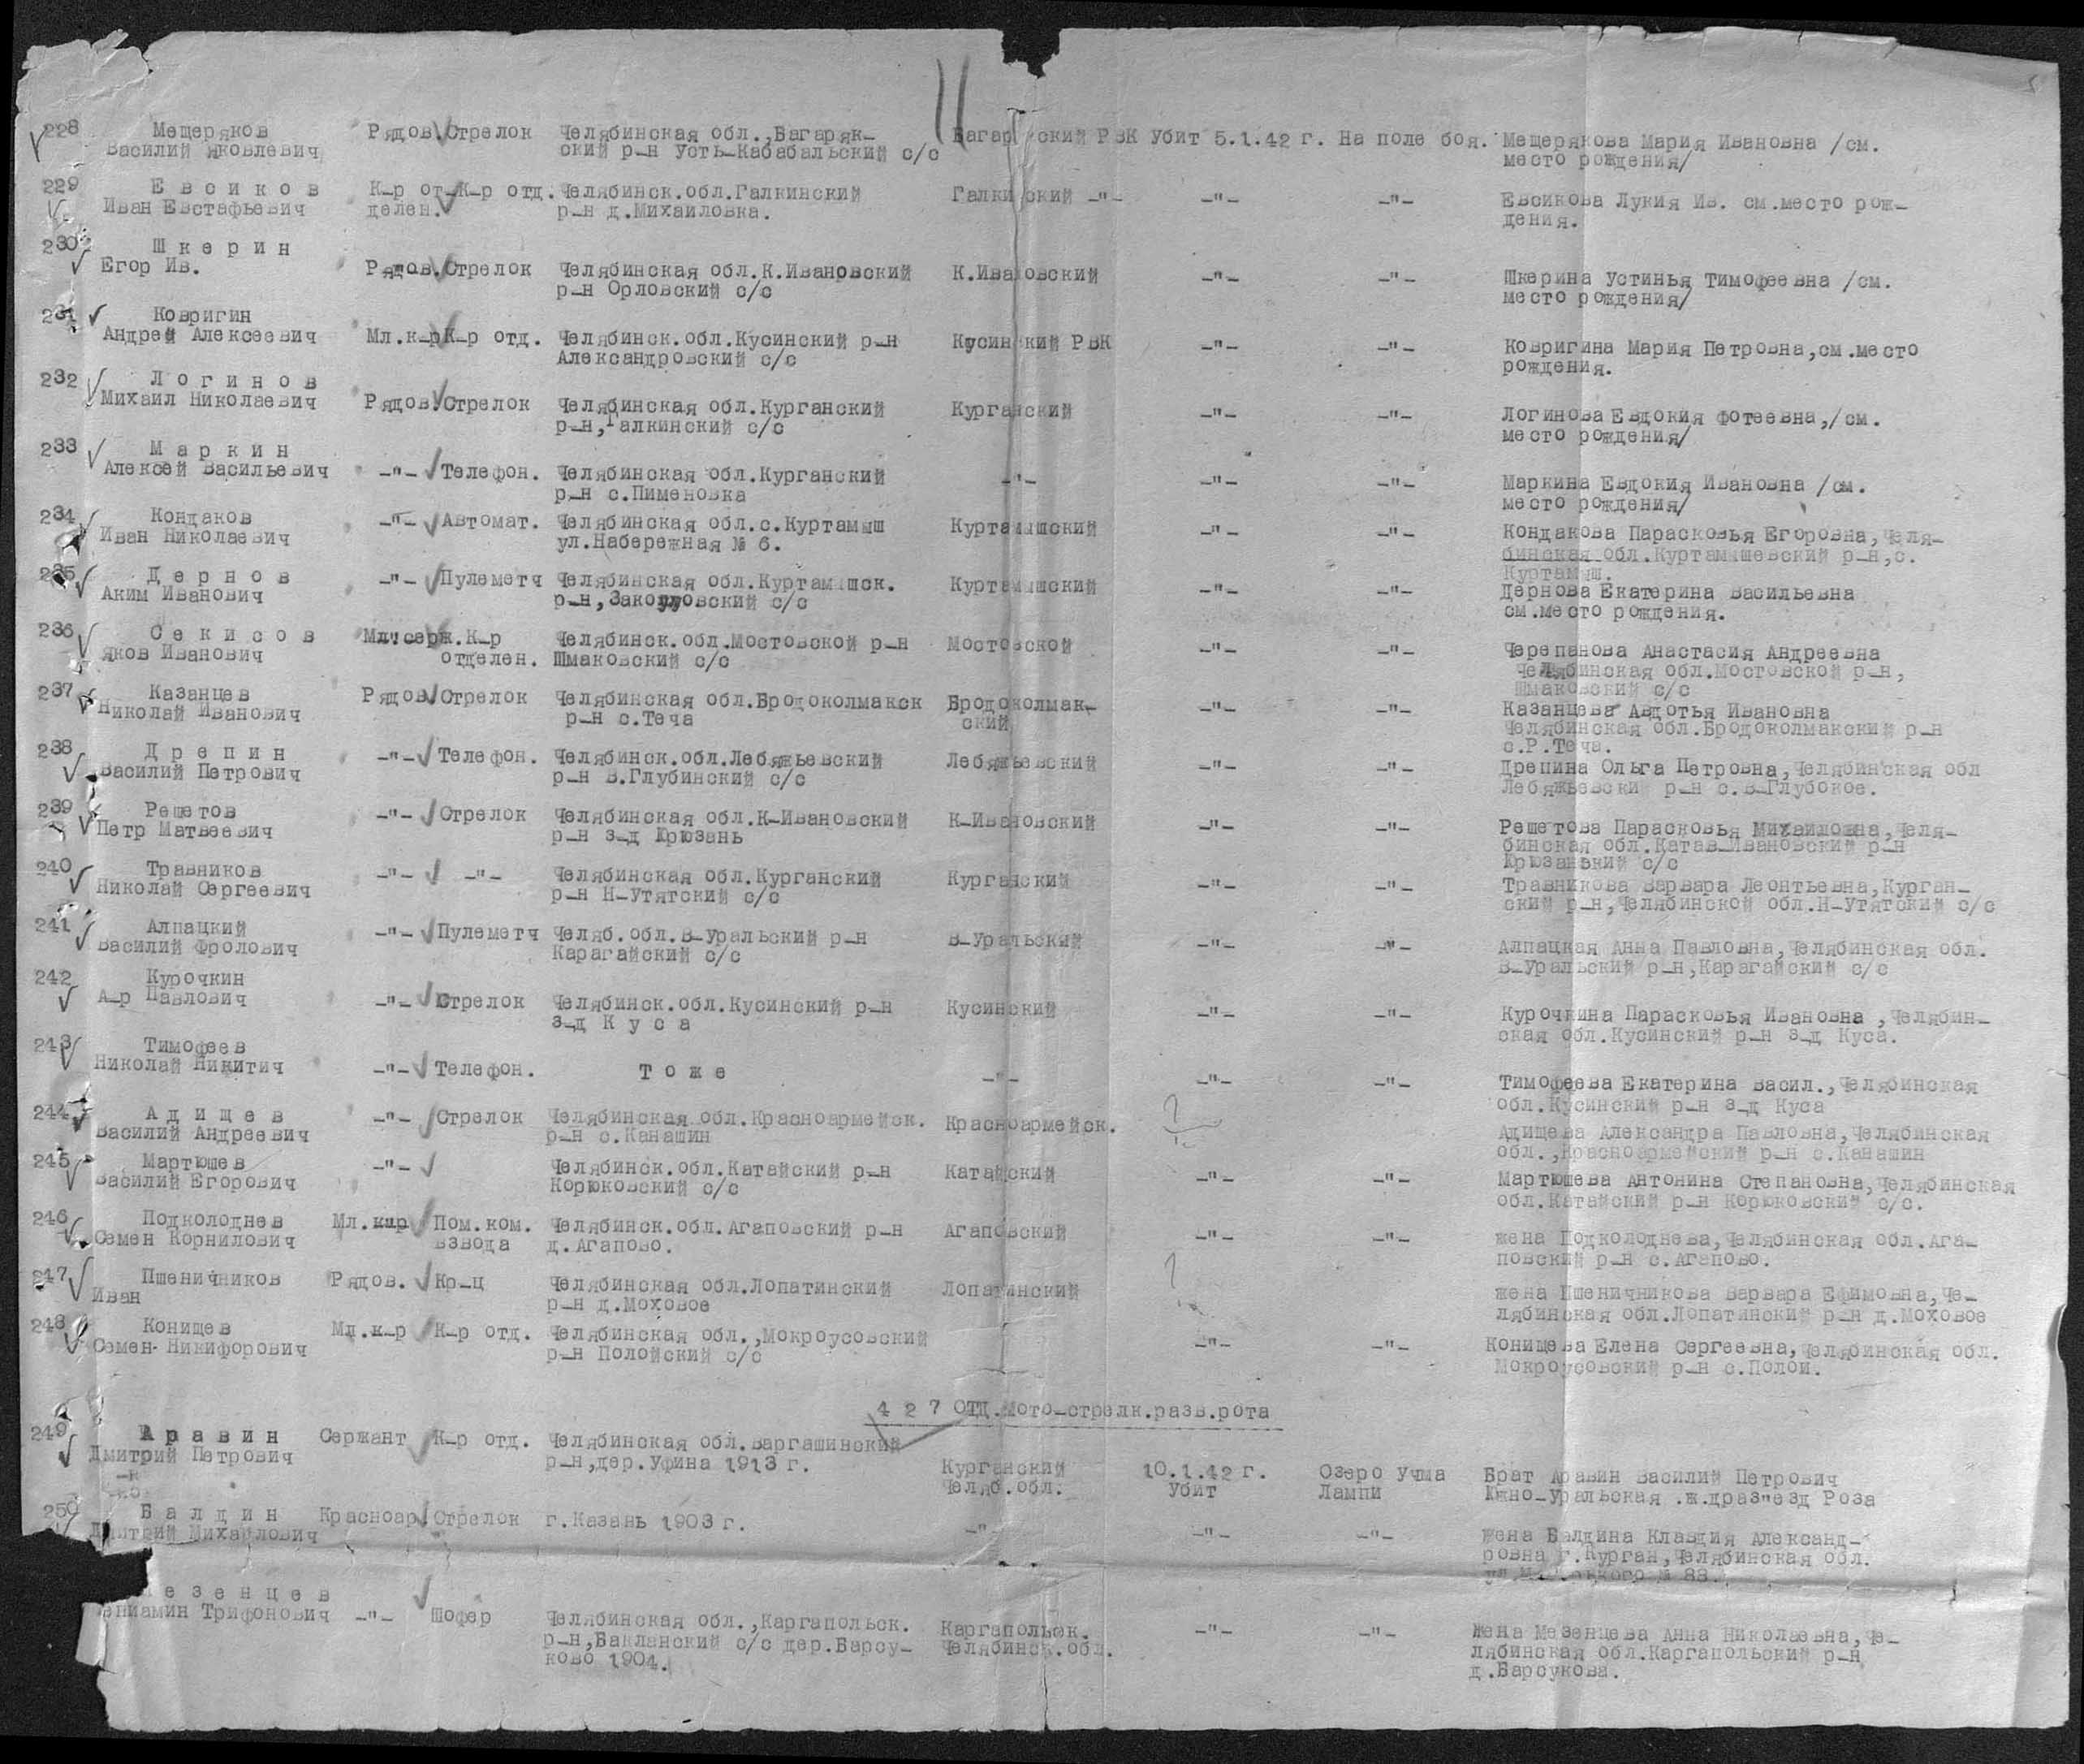 11
5
228 Мещеряков Рядов. Стрелок Челябинская обл.,Багаряк- Багар ский РВК Убит 5.1.42 г. На поле боя. Мещерякова Мария Ивановна /см.
Василий Яковлевич ский р-н Усть-Кабабальский с/с место рождения/
229 Е в с и к о в К-р от- К-р отд. Челябинск.обл.Галкинский Галкинский -"- -"- -"- Евсикова Лукия Ив. см.место рож-
Иван Евстафьевич делен. р-н д.Михайловка. дения.
230 Ш к е р и н
Егор Ив. Рядов. Стрелок Челябинская обл.К.Ивановский К.Ивановский -"- -"- Шкерина Устинья Тимофеевна /см.
р-н Орловский с/с место рождения/
231 Ковригин
Андрей Алексеевич Мл.к-р К-р отд. Челябинск.обл.Кусинский р-н Кусинский РВК -"- -"- Ковригина Мария Петровна,см.место
Александровский с/с рождения.
232 Л о г и н о в
Михаил Николаевич Рядов. Стрелок Челябинская обл.Курганский Курганский -"- -"- Логинова Евдокия Фотеевна,/см.
р-н,Галкинский с/с место рождения/
233 М а р к и н
Алексей Васильевич -"- Телефон. Челябинская обл.Курганский -"- -"- -"- Маркина Евдокия Ивановна /см.
р-н с.Пименовка место рождения/
234 Кондаков -"- Автомат. Челябинская обл.с.Куртамыш Куртамышский -"- -"- Кондакова Парасковья Егоровна,Челя-
Иван Николаевич ул.Набережная № 6. бинская обл.Куртамышевский р-н,с.
Куртамыш.
235 Д е р н о в -"- Пулеметч Челябинская обл.Куртамышск. Куртамышский -"- -"- Дернова Екатерина Васильевна
Аким Иванович р-н, с/с см.место рождения.
236 С е к и с о в Мл.серж. К-р Челябинск.обл.Мостовской р-н Мостовской -"- -"- Черепанова Анастасия Андреевна
Яков Иванович отделен. Шмаковский с/с Челябинская обл.Мостовской р-н,
Шмаковский с/с
237 Казанцев Рядов. Стрелок Челябинская обл.Бродоколмакск Бродоколмак- -"- -"- Казанцева Авдотья Ивановна
Николай Иванович р-н с.Теча ский Челябинская обл.Бродоколмакский р-н
с.Р.Теча.
238 Д р е п и н -"- Телефон. Челябинск.обл.Лебяжьевский Лебяжьевский -"- -"- Дрепина Ольга Петровна,Челябинская обл
Василий Петрович р-н В.Глубинский с/с Лебяжьевский р-н с.В-Глубокое.
239 Решетов -"- Стрелок Челябинская обл.К-Ивановский К-Ивановский -"- -"- Решетова Парасковья Михайловна,Челя-
Петр Матвеевич р-н з-д Юрюзань бинская обл.Катав-Ивановский р-н
Юрюзанский с/с
240 Травников -"- -"- Челябинская обл.Курганский Курганский -"- -"- Травникова Варвара Леонтьевна,Курган-
Николай Сергеевич р-н Н-Утятский с/с ский р-н,Челябинской обл.Н-Утятский с/с
241 Алпацкий -"- Пулеметч Челяб.обл.В-Уральский р-н В-Уральский -"- -"- Алпацкая Анна Павловна,Челябинская обл.
Василий Фролович Карагайский с/с В-Уральский р-н,Карагайский с/с
242 Курочкин
А-р Павлович -"- Стрелок Челябинск.обл.Кусинский р-н Кусинский -"- -"- Курочкина Парасковья Ивановна ,Челябин-
з-д К у с а ская обл.Кусинский р-н з-д Куса.
243 Тимофеев
Николай Никитич -"- Телефон. Т о ж е -"- -"- -"- Тимофеева Екатерина Васил.,Челябинская
обл.Кусинский р-н з-д Куса
244 А д и щ е в -"- Стрелок Челябинская обл.Красноармейск. Красноармейск. ? Адищева Александра Павловна,Челябинская
Василий Андреевич р-н с.Канашин обл.,Красноармейский р-н с.Канашин
245 Мартюшев -"- Челябинск.обл.Катайский р-н Катайский -"- -"- Мартюшева Антонина Степановна,Челябинская
Василий Егорович Корюковский с/с обл.Катайский р-н Корюковский с/с.
246 Подколоднев Мл.к-р Пом.ком. Челябинск.обл.Агаповский р-н Агаповский -"- -"- жена Подколоднева,Челябинская обл.Ага-
Семен Корнилович взвода д.Агапово. повский р-н с.Агапово.
247 Пшеничников Рядов. Кр-ц Челябинская обл.Лопатинский Лопатинский ? жена Пшеничникова Варвара Ефимовна,Че-
Иван р-н д.Моховое лябинская обл.Лопатинский р-н д.Моховое
248 Конищев Мл.к-р К-р отд. Челябинская обл.,Мокроусовский -"- -"- Конищева Елена Сергеевна,Челябинская обл.
Семен Никифорович р-н Полойский с/с Мокроусовский р-н с.Полои.
4 2 7 ОТД.Мото-стрелк.разв.рота
249 А р а в и н Сержант К-р отд. Челябинская обл.Варгашинский
Дмитрий Петрович р-н,дер.Уфина 1913 г. Курганский 10.1.42 г. Озеро Учма Брат Аравин Василий Петрович
Челяб.обл. Убит Лампи Южно-Уральская .ж.дразъезд Роза
250 Б а л д и н Красноар. Стрелок г.Казань 1903 г. -"- -"- -"- Жена Балдина Клавдия Александ-
Дмитрий Михайлович ровна г.Курган,Челябинская обл.
№ 88.
е з е н ц е в
ениамин Трифонович -"- Шофер Челябинская обл.,Каргапольск. Каргапольск. -"- -"- Жена Мезенцева Анна Николаевна,Че-
р-н,Бакланский с/с дер.Барсу- Челябинск.обл. лябинская обл.Каргапольский р-н
ково 1904. д.Барсукова.